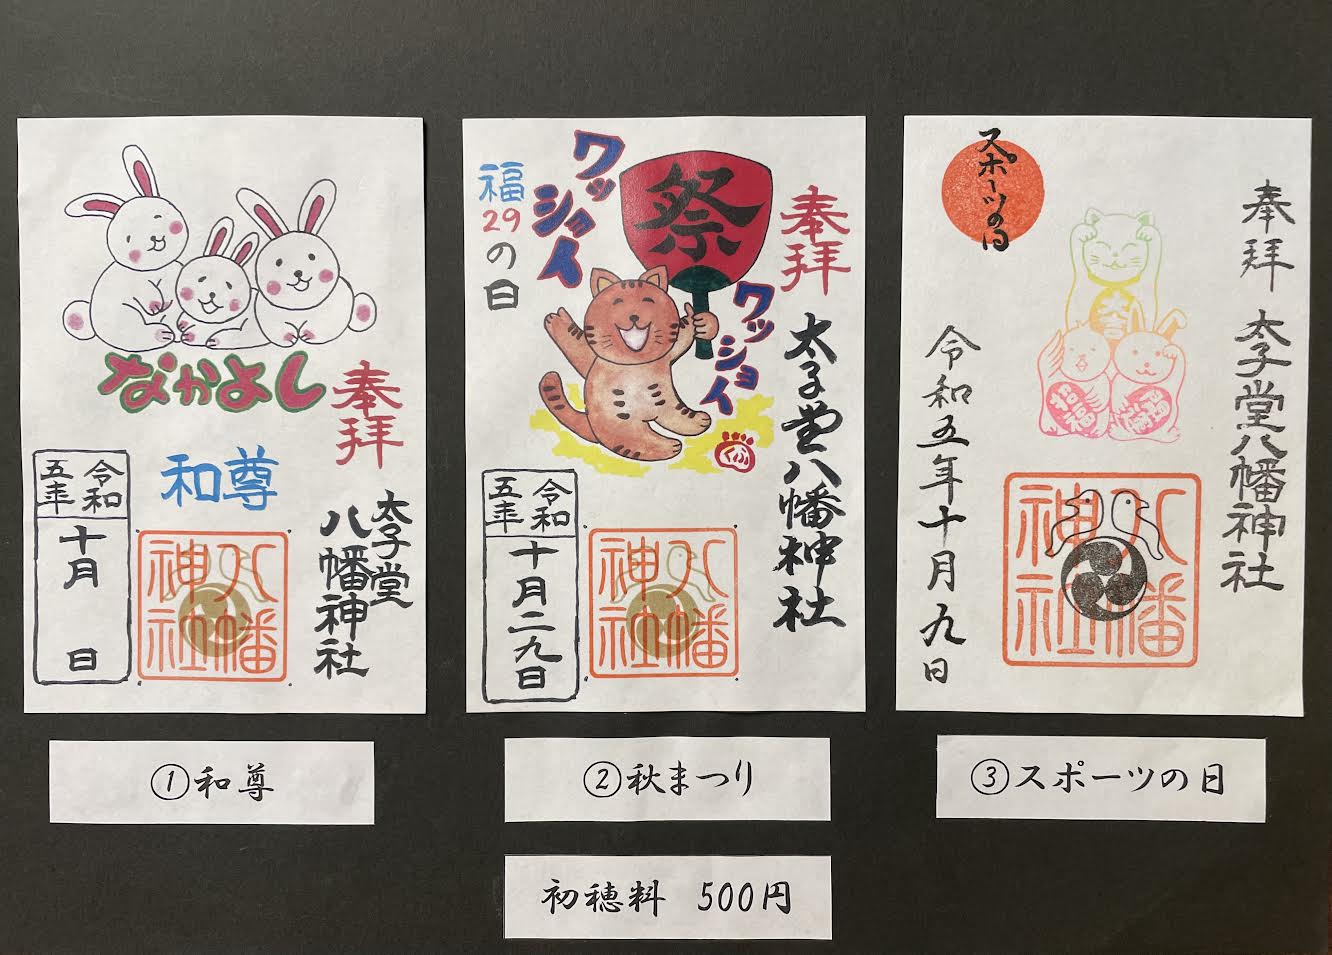 なかよし
奉拝
和尊
太子堂
八幡神社
令和
五年
十月 日
八幡
神社
①和尊
福
29
の日
ワッショイ
祭
ワッショイ
奉拝
太子堂八幡神社
令和
五年
十月二九日
八幡
神社
②秋まつり
スポーツの日
奉拝
太子堂八幡神社
令和五年十月九日
招福
八幡
神社
③スポーツの日
初穂料 500円